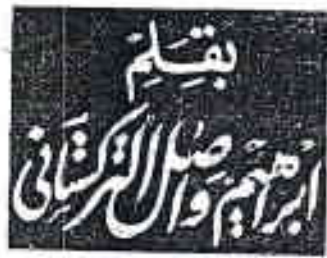 بقلم
ابراهيم واصل التركستانى